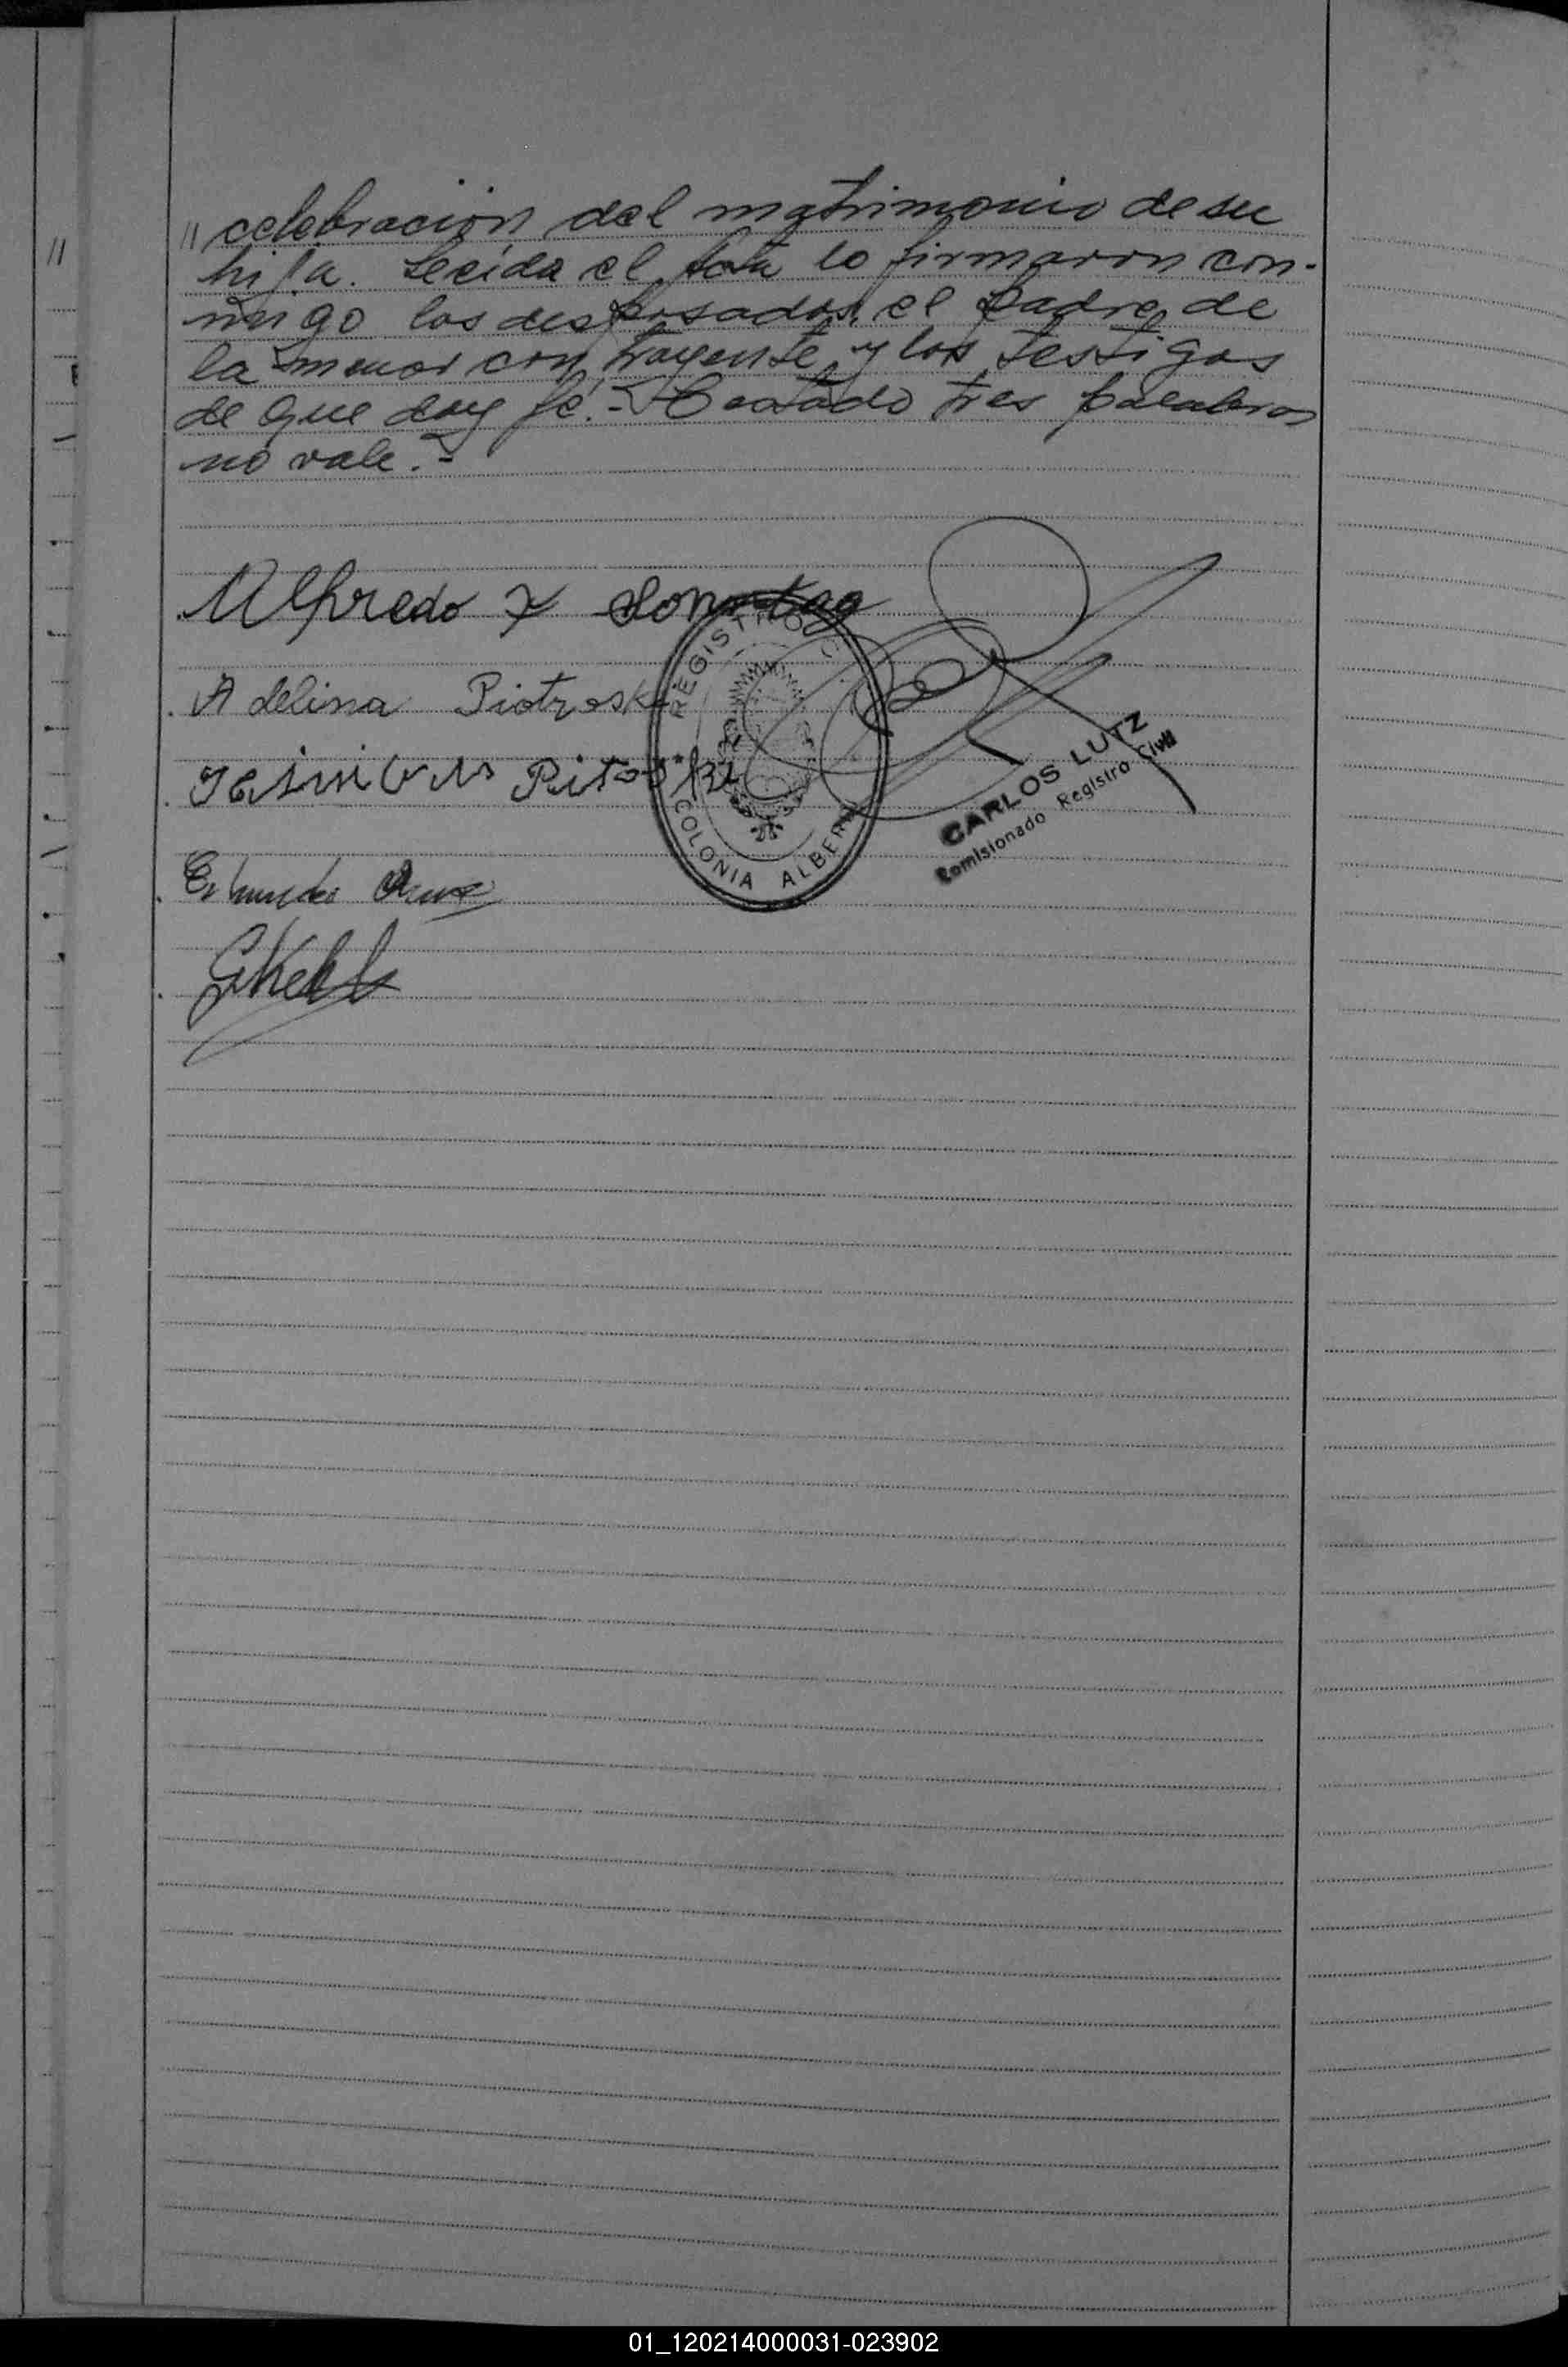 " celebracion del matrimonio de su
hija. Leeida el Acta lo firmaron con-
migo los desposados, el padre de
la menor contrayente, y los testigos
de que doy fé.- Testado tres palabras
no vale.-
Alfredo Sonntag
Adelina Piotroski
REGISTRO CIVIL
COLONIA ALBERDI
CARLOS LUTZ
Comisionado Registro Civil
01_120214000031-023902